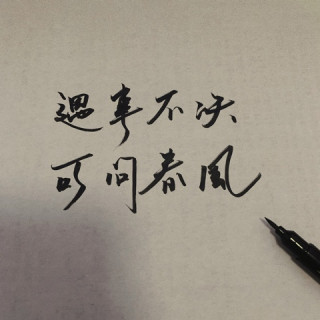 遇事不决
可问春風